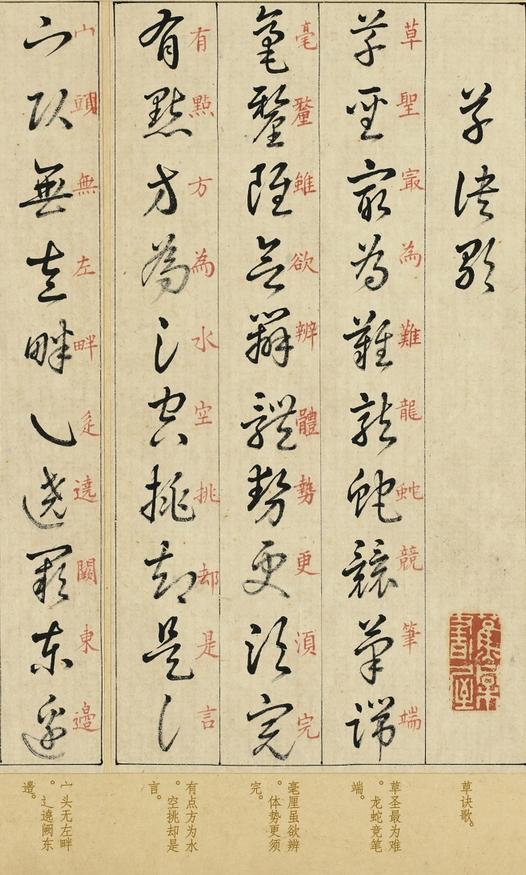 草诀歌
草聖冣為難龍蛇競筆端
毫釐雖欲辨體勢更湏完
有點方為水空挑却是言
宀頭無左畔辵遶闕東邉
草诀歌。
草圣最为难
。龙蛇竞笔
端。
毫厘虽欲辨
。体势更须
完。
有点方为水
。空挑却是
言。
宀头无左畔
。辶遶阙东
邉。